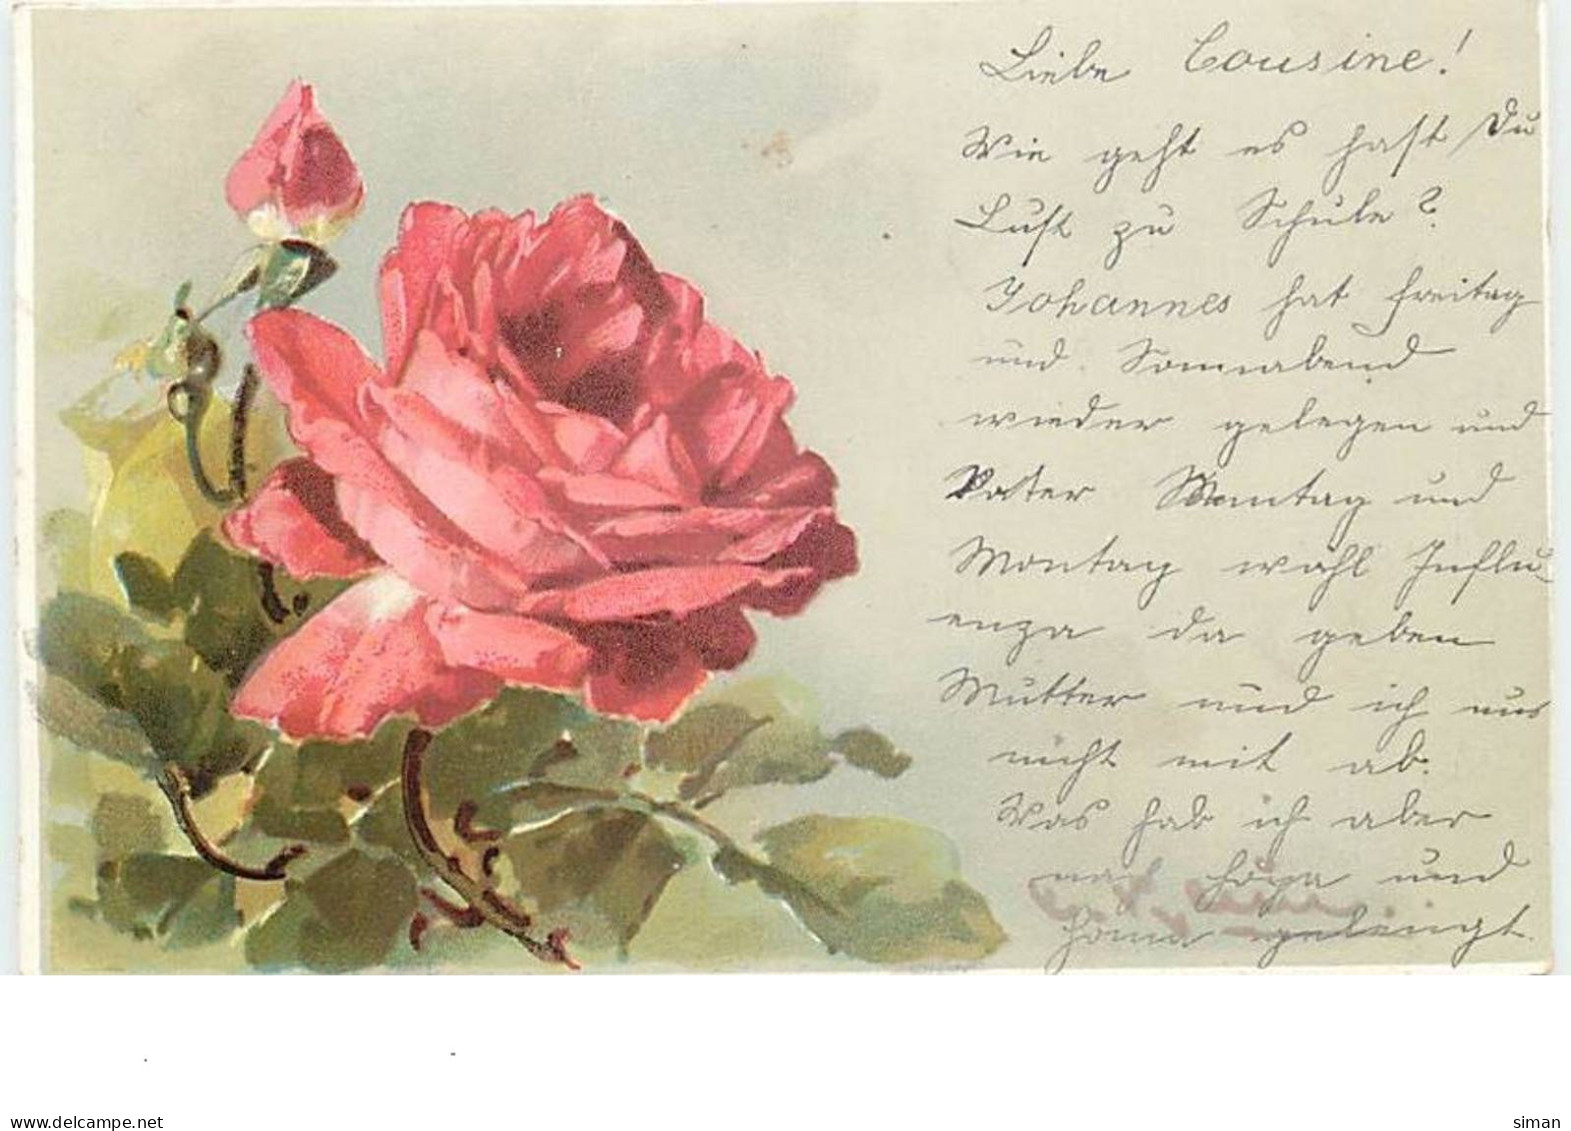 Liebe Cousine!
Wie geht es hast Du
Lust zu Schule?
Johannes hat Freitag
und Sonnabend
wieder gelegen und
Vater Montag und
Montag wohl Influ-
enza da geben
Mutter und ich uns
nicht mit ab.
Was hab ich aber
und
gelengt.
www.delcampe.net
siman